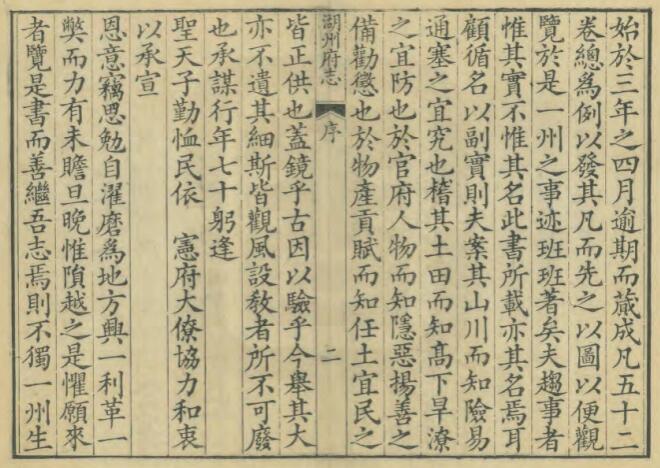 始於三年之四月逾期而蕆成凡五十二
卷總爲例以發其凡而先之以圖以便觀
覽於是一州之事迹班班著矣夫趨事者
惟其實不惟其名此書所載亦其名焉耳
顧循名以副實則夫案其山川而知險易
通塞之宜究也稽其土田而知高下旱潦
之宜防也於官府人物而知隱惡揚善之
備勸懲也於物產貢賦而知任土宜民之
湖州府志
序
二
皆正供也蓋鏡乎古因以驗乎今舉其大
亦不遺其細斯皆觀風設敎者所不可廢
也承謀行年七十躬逢
聖天子勤恤民依 憲府大僚協力和衷
以承宣
恩意竊思勉自濯磨爲地方興一利革一
獘而力有未贍旦晚惟隕越之是懼願來
者覽是書而善繼吾志焉則不獨一州生